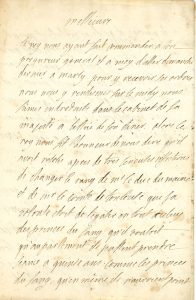 messieurs
le roy nous ayant fait commander a son
procureur general et a moy d'aller dimanche
dernier a marly pour y recevoir ses ordres
nous nous y rendismes sur le midy nous
fumes introduits dans le cabinet de sa
majesté a l'issue de son diner alors le
roy nous fit l'honneur de nous dire qu'il
avoit resolu apres de tres serieuses reflexions
de changer le rang de mr le duc du maine
et de mr le comte de toulouse que sa
volonté estoit de legaler en tout a celuy
des princes du sang qu'il vouloit
qu'au parlement ils passent prendre
leurs a quinze ans comme les princes
du sang quand mesme ils n'auroient point